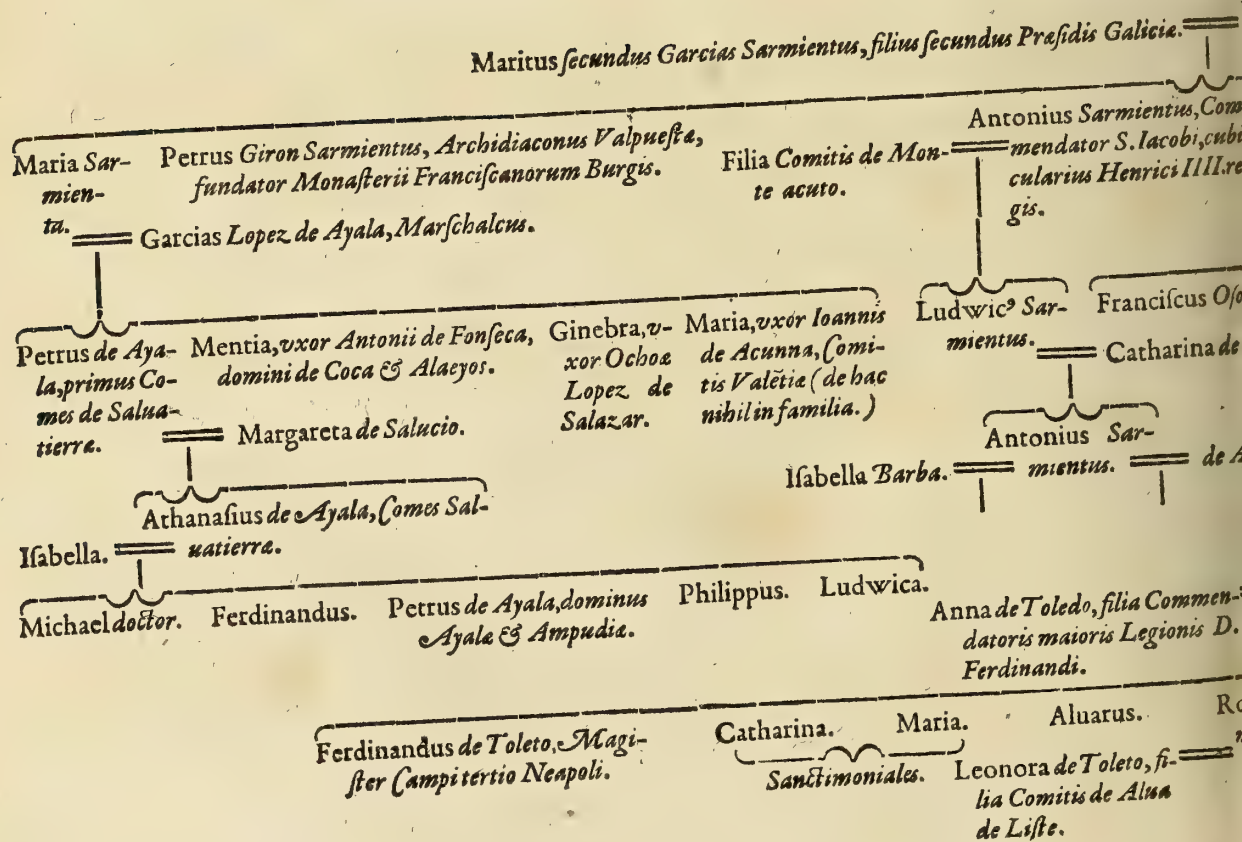 Maritus ſecundus Garcias Sarmientus, filius ſecundus Præſidis Galiciæ.
Maria Sar-
mien-
ta.
Petrus Giron Sarmientus, Archidiaconus Valpueſtæ,
fundator Monaſterii Franciſcanorum Burgis.
Filia Comitis de Mon-
te acuto.
Antonius Sarmientus, Com
mendator S. Iacobi, cubi
cularius Henrici IIII. re
gis.
Garcias Lopez de Ayala, Marſchalcus.
Petrus de Aya-
la, primus Co-
mes de Salua-
tierra.
Mentia, vxor Antonii de Fonſeca,
domini de Coca & Alaeyos.
Ginebra, v-
xor Ochoæ
Lopez de
Salazar.
Maria, vxor Ioannis
de Acunna, Comi-
tis Valētiæ (de hac
nihil in familia.)
Ludwicꝰ Sar-
mientus.
Franciſcus Oſo
Catharina de
Margareta de Salucio.
Antonius Sar-
mientus.
Iſabella Barba.
de A
Athanaſius de Ayala, Comes Sal-
uatierræ.
Iſabella.
Michael doctor.
Ferdinandus.
Petrus de Ayala, dominus
Ayalæ & Ampudiæ.
Philippus.
Ludwica.
Anna de Toledo, filia Commen-
datoris maioris Legionis D.
Ferdinandi.
Ferdinandus de Toleto, Magi-
ſter Campi tertio Neapoli.
Catharina.
Maria.
Sanctimoniales.
Aluarus.
Ro
Leonora de Toleto, fi-
lia Comitis de Alua
de Liſte.